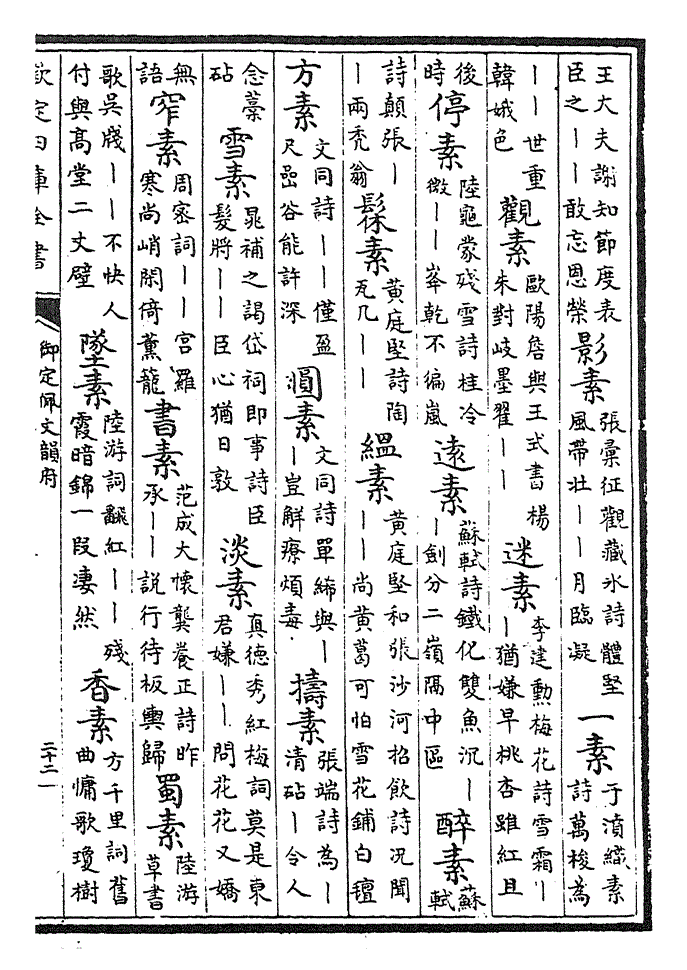 王大夫謝知節度表臣之——敢忘恩榮影素張彙征觀藏氷詩體堅風帶壮——月臨凝一素于濆織素詩萬梭為
——世重韓娥色觀素歐陽詹與王式書楊朱對岐墨翟——迷素李建勳梅花詩雪霜——猶嫌早桃杏雖紅且
後時停素陸龜蒙殘雪詩桂冷微——峯乾不徧嵐遠素蘇軾詩鐵化雙魚沉——劍分二嶺隔中區醉素蘇軾
詩顛張——兩禿翁髹素黄庭堅詩陶瓦几——緼素黄庭堅和張沙河招飲詩況聞——尚黄葛可怕雪花鋪白氊
方素文同詩——僅盈尺嵒谷能許深圓素文同詩單絺與——豈解療煩毒擣素張端詩為—清砧—令人
念藁砧雪素晁補之謁岱祠即事詩臣髮將——臣心猶日敦淡素真德秀紅梅詞莫是東君嫌——問花花又嬌
無語窄素周密詞——宮羅寒尚峭閑倚薰籠書素范成大懷龔養正詩昨承——説行待板輿歸蜀素陸游草書
歌吳牋——不快人付與髙堂二丈壁墜素陸游詞飜紅——殘霞暗錦一段淒然香素方千里詞舊曲慵歌瓊樹
欽定四庫全書
御定佩文韻府
二十二